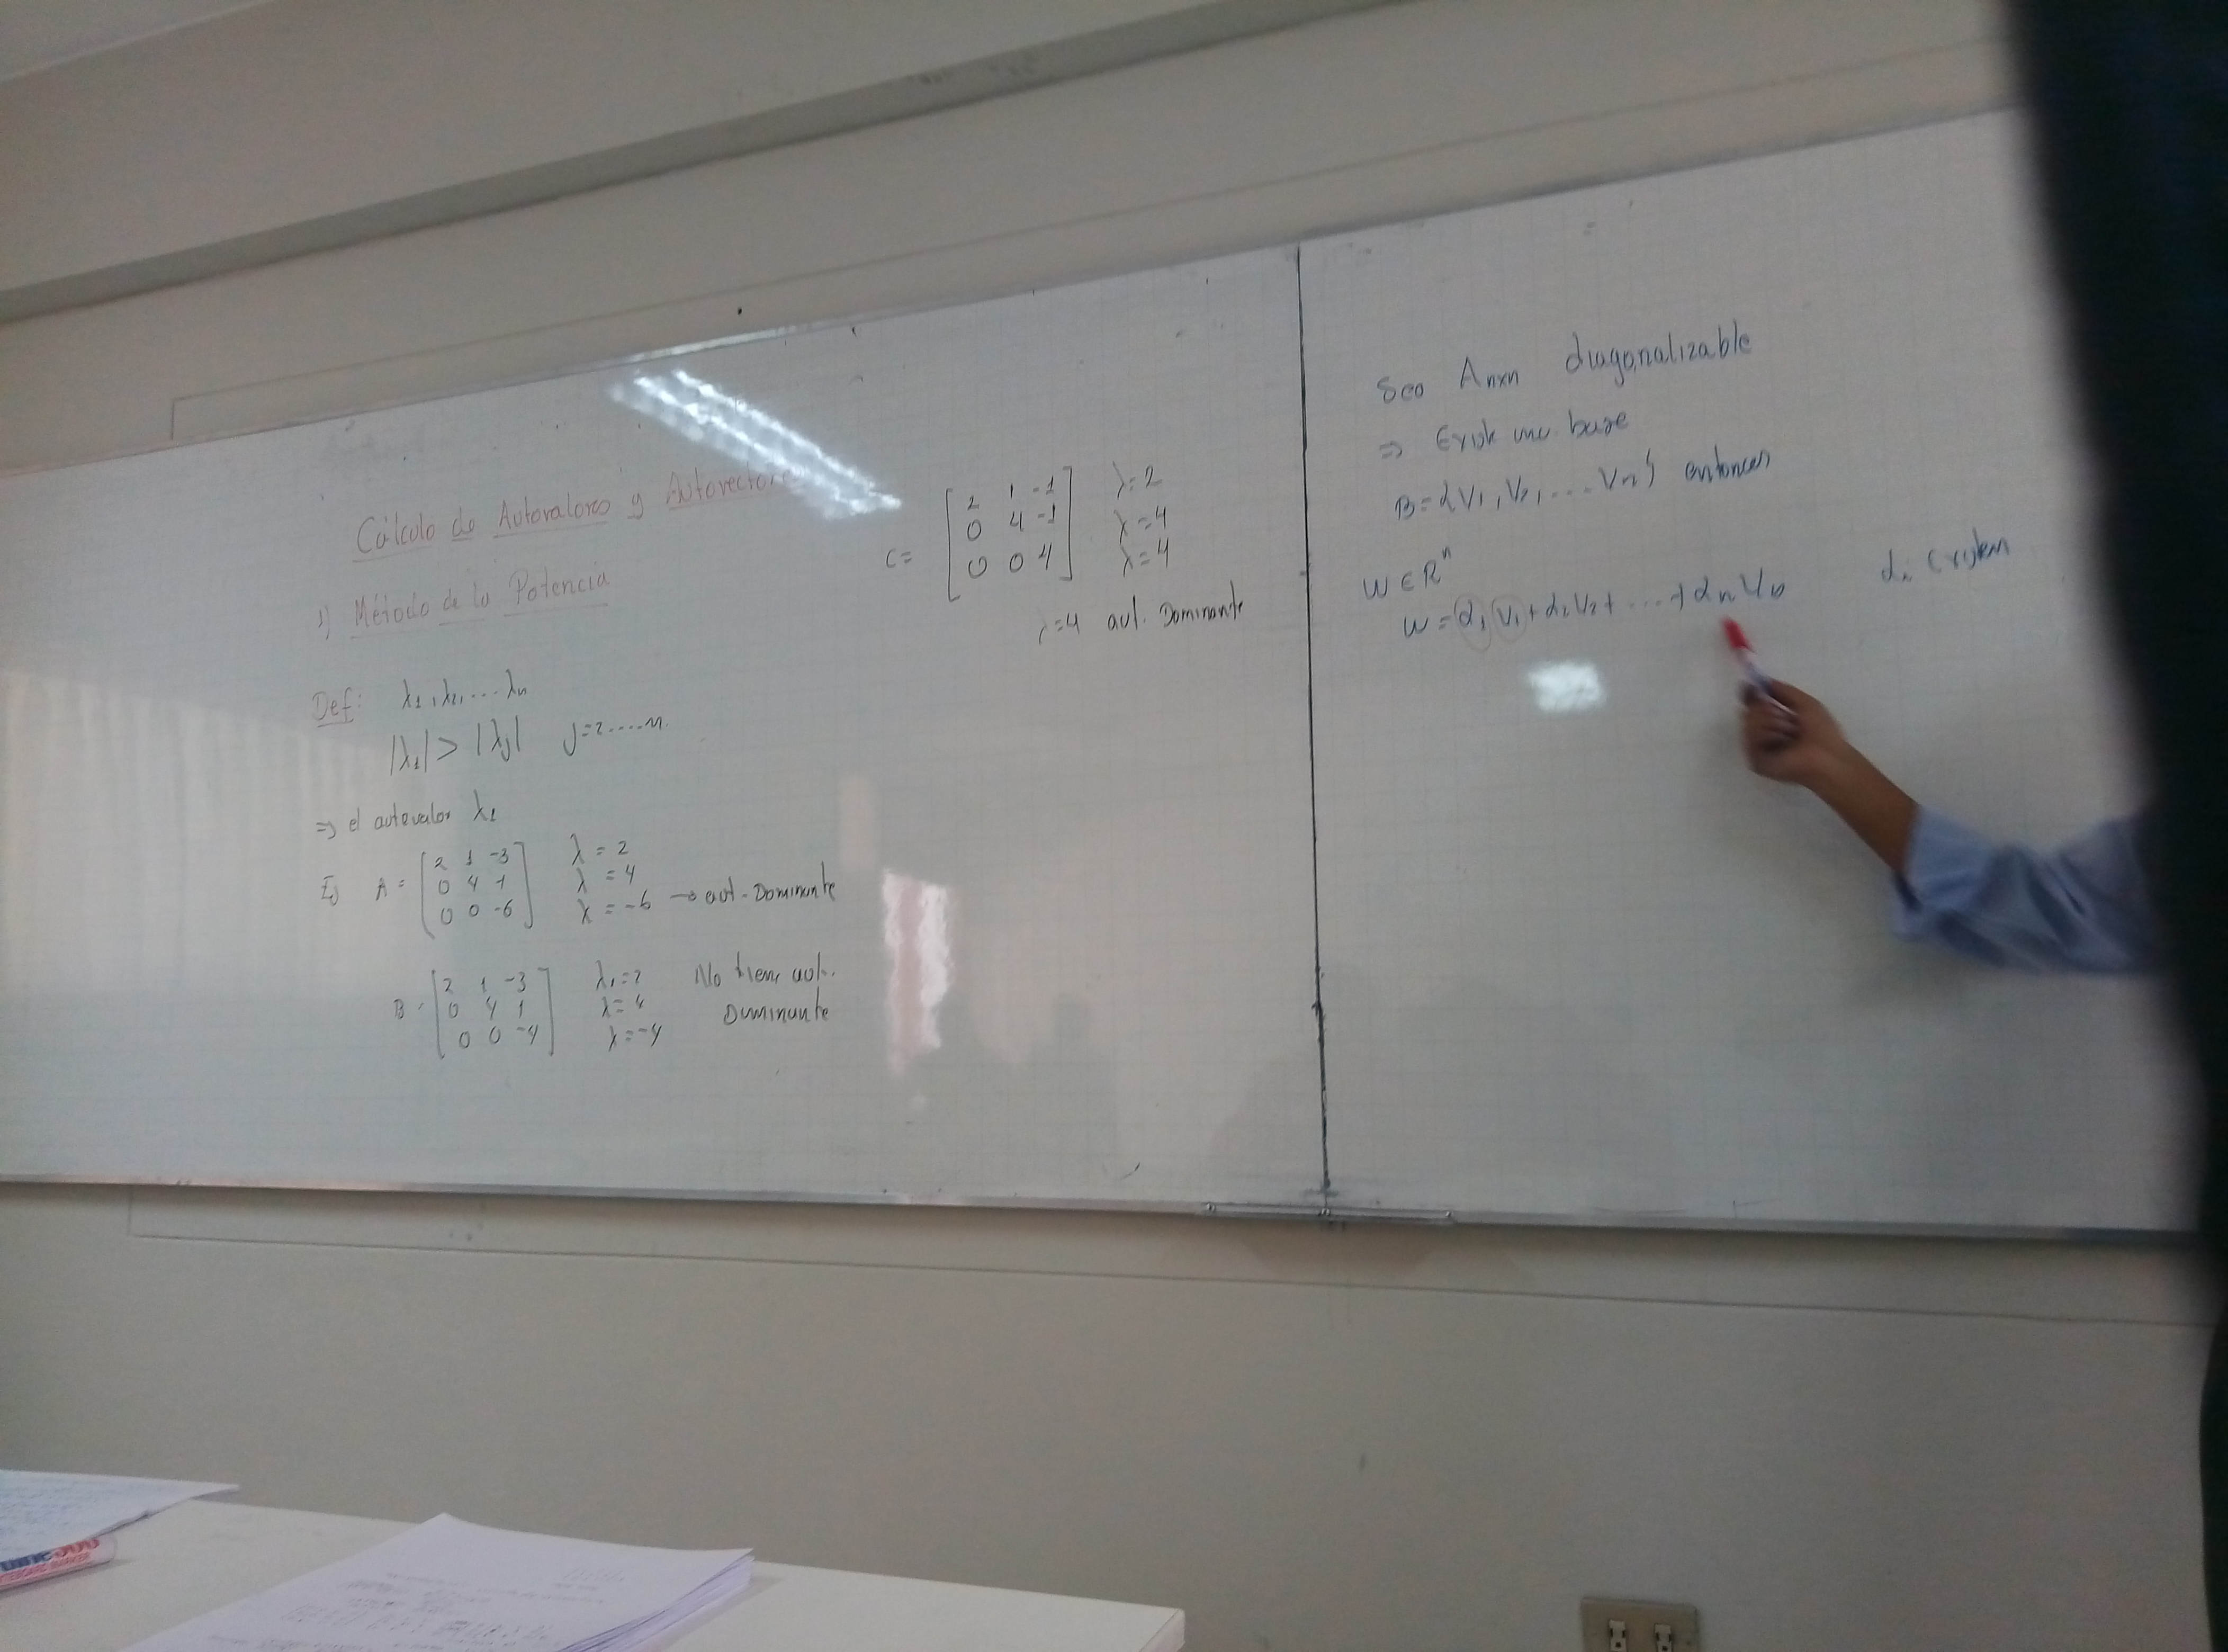 Cálculo de Autovalores y Autovectores
1) Método de la Potencia
Def: λ1, λ2, ... λn
|λ1| > |λj| j=2....n.
⇒ el autovalor λ1
Ej A = [2 1 -3] λ = 2
[0 4 1] λ = 4
[0 0 -6] λ = -6 → aut. Dominante
B = [2 1 -3] λ1 = 2 No tiene aut.
[0 4 1] λ = 4 Dominante
[0 0 -4] λ = -4
C = [2 1 -1] λ = 2
[0 4 -1] λ = 4
[0 0 4] λ = 4
λ=4 aut. Dominante
Sea Anxn diagonalizable
⇒ Existe una base
B = {V1, V2, ... Vn} entonces
W ∈ R^n
W = α1 V1 + α2 V2 + ... + αn Vn αi existen